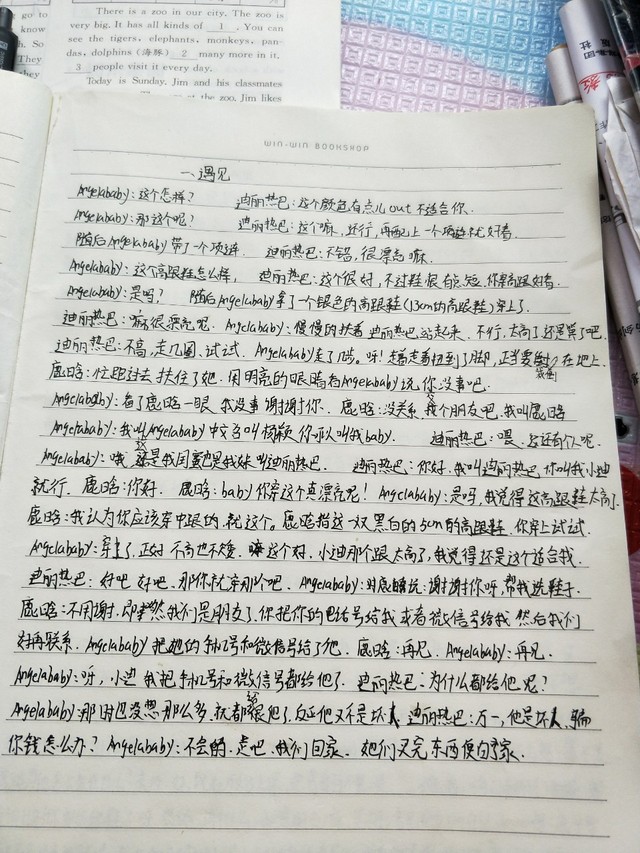 go to
know
h. So
They
There is a zoo in our city. The zoo is
very big. It has all kinds of 1 . You can
see the tigers, elephants, monkeys, pan-
das, dolphins (海豚) 2 many more in it.
3 people visit it every day.
Today is Sunday. Jim and his classmates
at the zoo. Jim likes
WIN-WIN BOOKSHOP
一遇见
Angelababy:这个怎样? 迪丽热巴:这个颜色有点儿out 不适合你.
Angelababy:那这个呢? 迪丽热巴:这个嘛,还行,再配上一个项链就好看.
随后Angelababy带了一个项链. 迪丽热巴:不错,很漂亮嘛.
Angelababy:这个高跟鞋怎么样, 迪丽热巴:这个很好,不过鞋跟有点短,你穿高跟好看.
Angelababy:是吗? 随后Angelababy拿了一个银色的高跟鞋(13cm的高跟鞋)穿上了.
迪丽热巴:嘛很漂亮呢. Angelababy:慢慢的扶着迪丽热巴站起来.不行,太高了还是算了吧.
迪丽热巴:不高,走几圈,试试. Angelababy走了几步.呀!走着走着扭到了脚,正当要倒在地上.
鹿晗:忙跑过去扶住了她.用明亮的眼睛看Angelababy说你没事吧.
Angelababy:看了鹿晗一眼 我没事谢谢你. 鹿晗:没关系,我个朋友吧.我叫鹿晗
Angelababy:我叫Angelababy中文名叫杨颖 你可以叫我baby. 迪丽热巴:喂,这还有个人呢.
Angelababy:哦 这是我闺蜜也是我妹叫迪丽热巴. 迪丽热巴:你好,我叫迪丽热巴 你叫我小迪
就行. 鹿晗:你好. 鹿晗:baby 你穿这个真漂亮呢! Angelababy:是吗,我觉得这高跟鞋太高了.
鹿晗:我认为你应该穿中跟的,就这个.鹿晗指这一双黑白的5cm的高跟鞋.你穿上试试.
Angelababy:穿上了,正好 不高也不矮. 嘛这个好,小迪那个跟太高了,我觉得还是这个适合我.
迪丽热巴:好吧 好吧.那你就穿那个吧. Angelababy:对鹿晗说:谢谢你呀,帮我选鞋子.
鹿晗:不用谢.即然我们是朋友了.你把你的电话号给我或者微信号给我 然后我们
好再联系. Angelababy把她的手机号和微信号给了他. 鹿晗:再见. Angelababy:再见.
Angelababy:呀,小迪 我把手机号和微信号都给他了. 迪丽热巴:为什么都给他呢?
Angelababy:那时也没想那么多,就都给他了.反正他又不是坏人 迪丽热巴:万一,他是坏人,骗
你钱怎么办? Angelababy:不会的.走吧.我们回家. 她们又完东西便向了家.